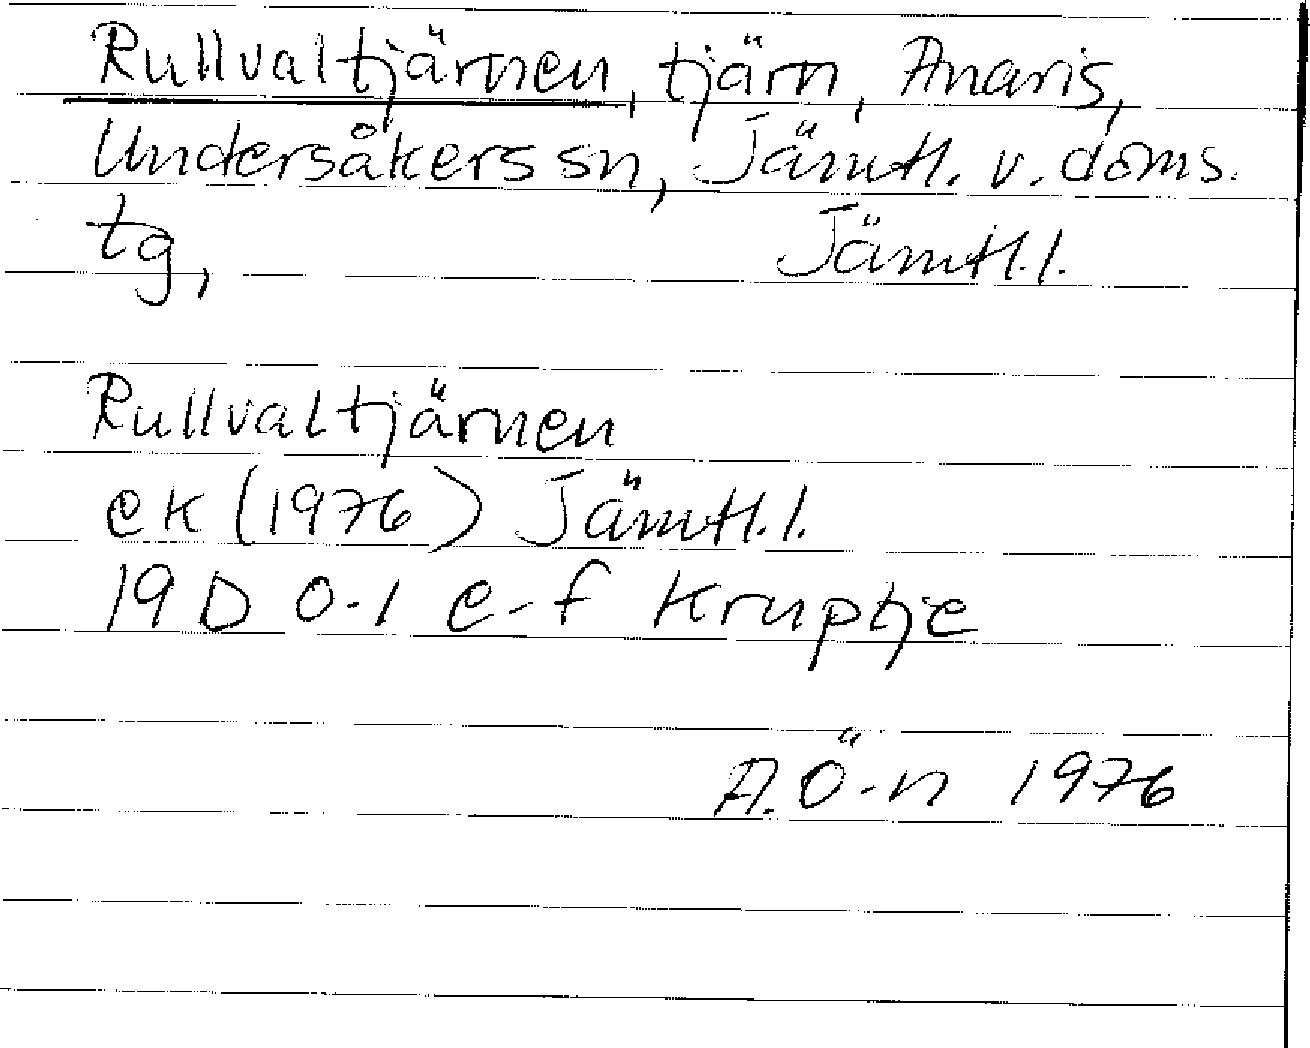 Rullvaltjärnen, tjärn, Anaris,
Undersåkers sn, Jämtl. v. doms.
tg, Jämtl. l.
Rullvaltjärnen
ek (1976) Jämtl. l.
19 D 0-1 e-f Kruptje
A. Ö-n 1976